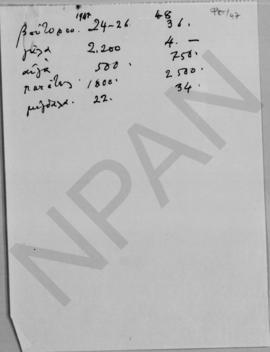 1947 48
βούτυρο 24-26 36.
γάλα 2.200 4.—
αυγά 500 750.
πατάτες 1800 2500.
μύγδαλα 22. 34.
NPAN